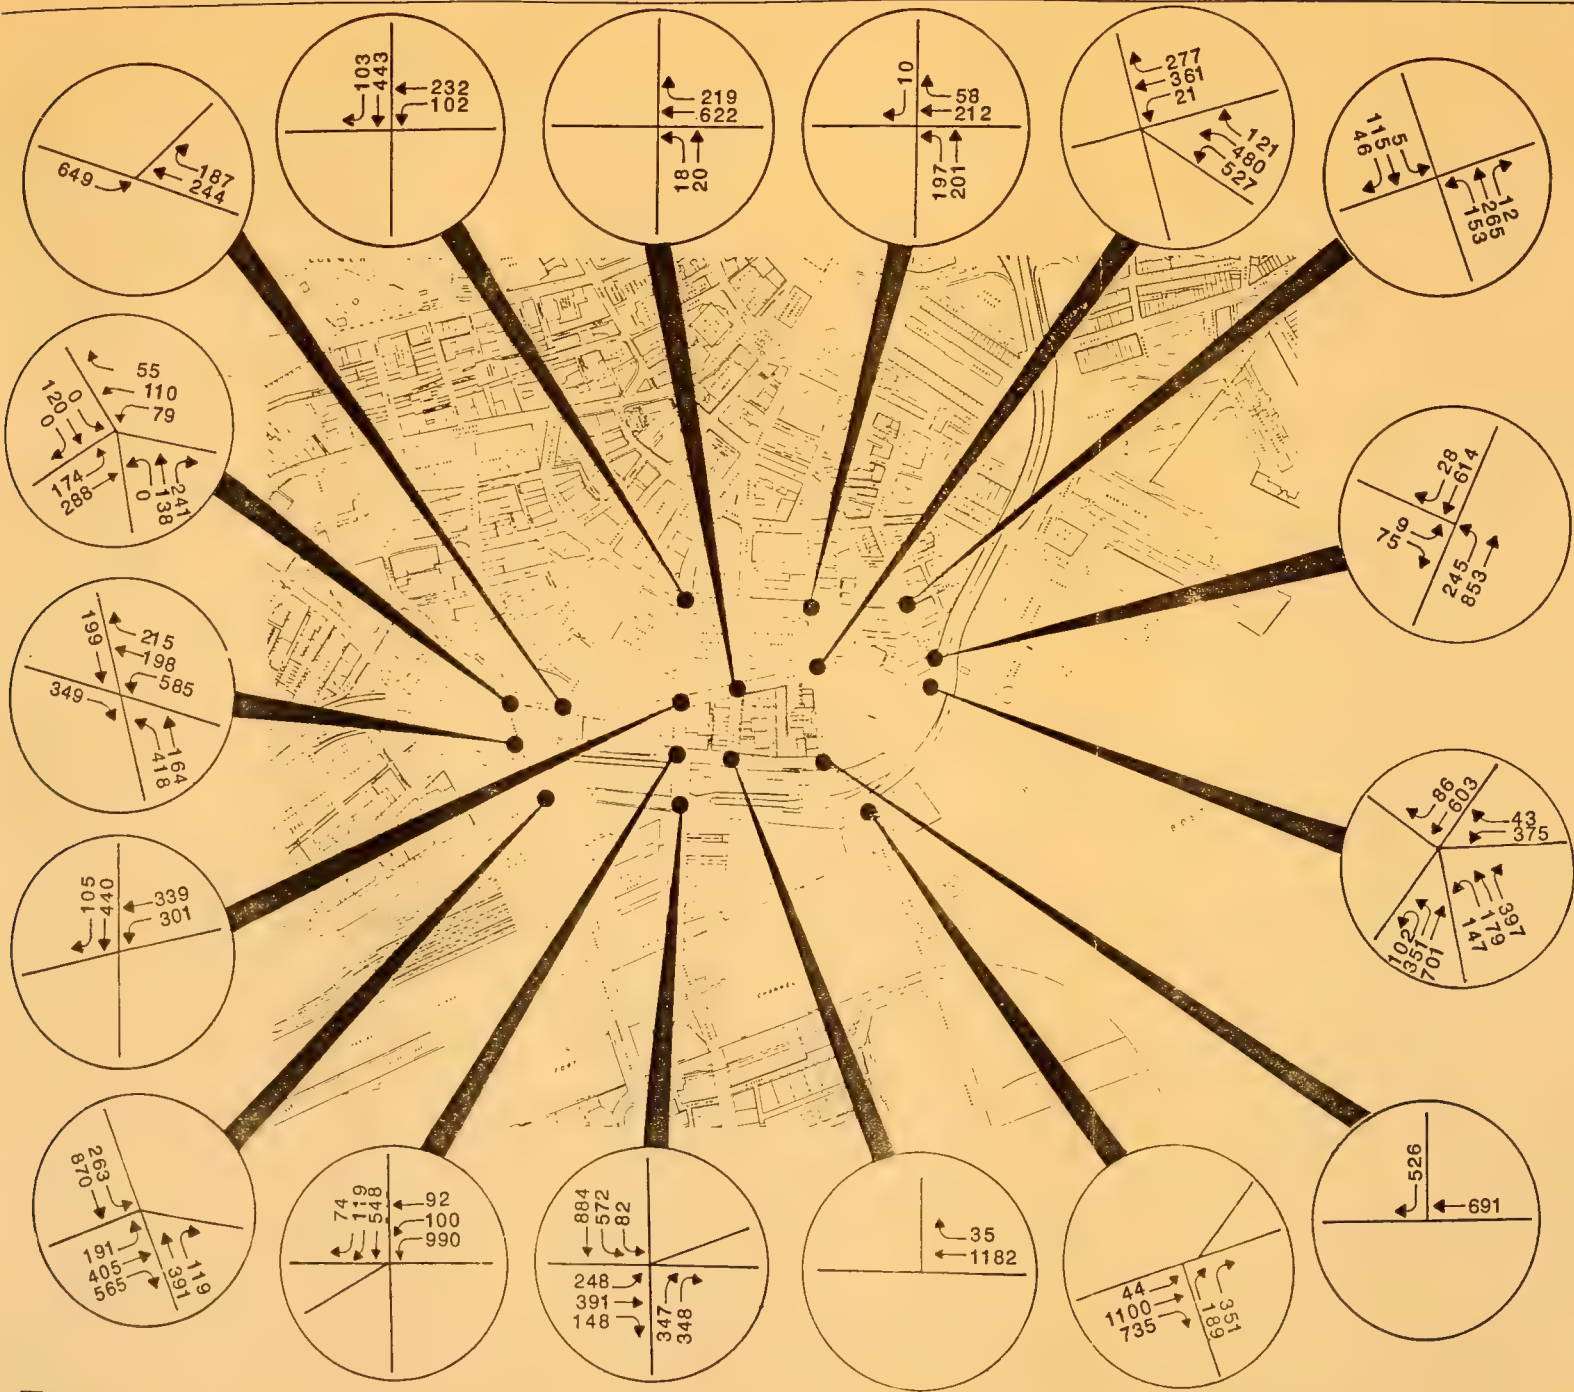 103
443
232
102
219
622
18
20
10
58
212
197
201
277
361
21
121
480
527
5
115
46
12
265
153
649
187
244
55
110
79
0
120
0
174
288
241
138
0
28
614
9
75
245
853
199
215
198
585
349
164
418
86
603
43
375
397
179
147
102
351
701
105
440
339
301
263
870
191
405
565
119
391
74
119
548
92
100
990
884
572
82
248
391
148
347
348
35
1182
44
1100
735
351
189
526
691
FORT
CHANNEL